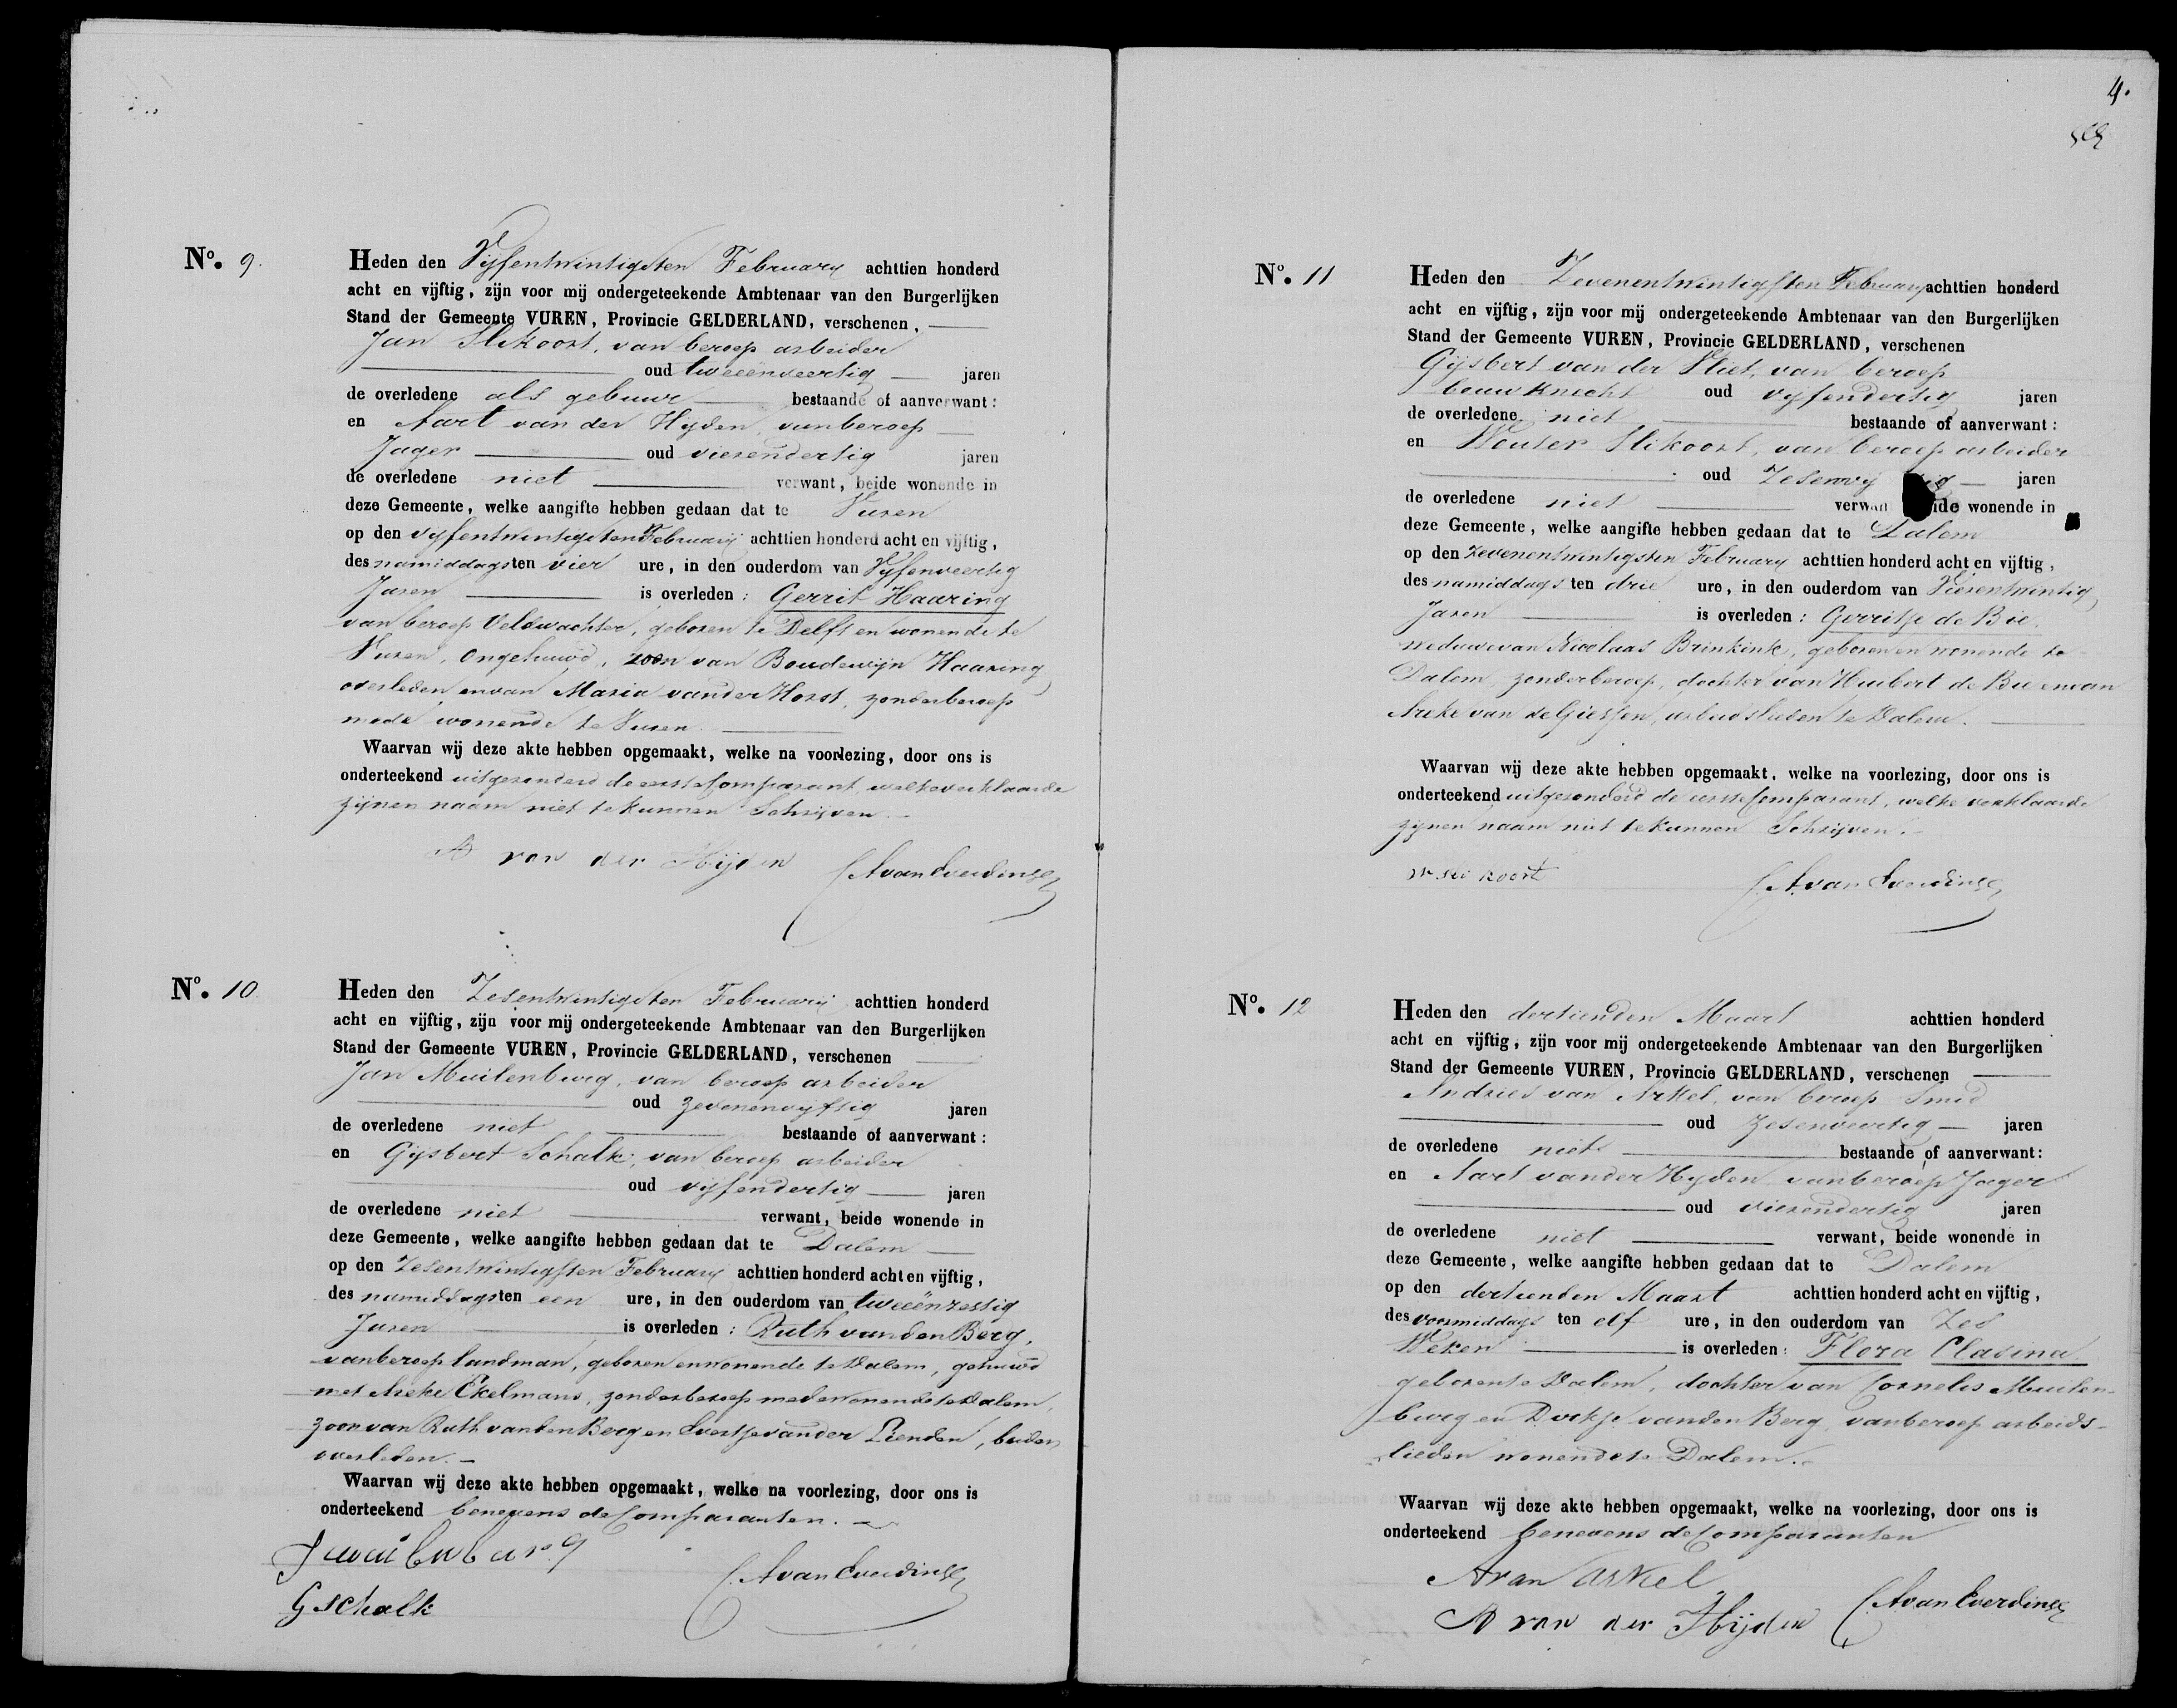 No. 9.
Heden den Vijfentwintigsten February achttien honderd
acht en vijftig, zijn voor mij ondergeteekende Ambtenaar van den Burgerlijken
Stand der Gemeente VUREN, Provincie GELDERLAND, verschenen,
Jan Slikoort, van beroep arbeider
oud tweeënveertig jaren
de overledene als gebuur bestaande of aanverwant:
en Aart van der Hyden, van beroep
Jager oud vierendertig jaren
de overledene niet verwant, beide wonende in
deze Gemeente, welke aangifte hebben gedaan dat te Vuren
op den vijfentwintigsten February achttien honderd acht en vijftig,
des namiddags ten vier ure, in den ouderdom van Vijfenveertig
Jaren is overleden: Gerrit Haaring
van beroep Veldwachter, geboren te Delft en wonende te
Vuren, Ongehuwd, zoon van Boudewijn Haaring
overleden en van Maria van der Horst, zonder beroep
mede wonende te Vuren.
Waarvan wij deze akte hebben opgemaakt, welke na voorlezing, door ons is
onderteekend uitgezonderd de eerste Comparant, welke verklaarde
zijnen naam niet te kunnen Schrijven.
A van der Hijden CAvanEverdingen
No. 10.
Heden den Zesentwintigsten February achttien honderd
acht en vijftig, zijn voor mij ondergeteekende Ambtenaar van den Burgerlijken
Stand der Gemeente VUREN, Provincie GELDERLAND, verschenen
Jan Muilenburg, van beroep arbeider
oud zevenenvijftig jaren
de overledene niet bestaande of aanverwant:
en Gijsbert Schalk, van beroep arbeider
oud vijfendertig jaren
de overledene niet verwant, beide wonende in
deze Gemeente, welke aangifte hebben gedaan dat te Dalem
op den Zesentwintigsten February achttien honderd acht en vijftig,
des namiddags ten een ure, in den ouderdom van tweeënzestig
Jaren is overleden: Ruth van den Berg,
van beroep landman, geboren en wonende te Dalem, gehuwd
met Aieke Ekelmans, zonder beroep mede wonende te Dalem,
zoon van Ruth van den Berg en Evertje van der Lienden, beiden
overleden.
Waarvan wij deze akte hebben opgemaakt, welke na voorlezing, door ons is
onderteekend benevens de Comparanten.
J muilenburg
G schalk CAvanEverdingen
4.
No. 11
Heden den Zevenentwintigsten February achttien honderd
acht en vijftig, zijn voor mij ondergeteekende Ambtenaar van den Burgerlijken
Stand der Gemeente VUREN, Provincie GELDERLAND, verschenen
Gijsbert van der Vliet, van beroep
bouwknecht oud vijfendertig jaren
de overledene niet bestaande of aanverwant:
en Wouter Slikoort, van beroep arbeider
oud Zesenvij ig jaren
de overledene niet verwan ide wonende in
deze Gemeente, welke aangifte hebben gedaan dat te Dalem
op den zevenentwintigsten February achttien honderd acht en vijftig,
des namiddags ten drie ure, in den ouderdom van Vierentwintig
Jaren is overleden: Gerritje de Bie.
weduwe van Nicolaas Brinkink, geboren en wonende te
Dalem, zonder beroep, dochter van Huibert de Bie en van
Aieke van de Giessen, arbeidslieden te Dalem.
Waarvan wij deze akte hebben opgemaakt, welke na voorlezing, door ons is
onderteekend uitgezonderd de eerste Comparant, welke verklaarde
zijnen naam niet te kunnen Schrijven.
W sli koort CAvanEverdingen
No. 12
Heden den dertienden Maart achttien honderd
acht en vijftig, zijn voor mij ondergeteekende Ambtenaar van den Burgerlijken
Stand der Gemeente VUREN, Provincie GELDERLAND, verschenen
Andries van Arkel, van beroep Smid
oud Zesenveertig jaren
de overledene niet bestaande of aanverwant:
en Aart van der Hyden van beroep Jager
oud vierendertig jaren
de overledene niet verwant, beide wonende in
deze Gemeente, welke aangifte hebben gedaan dat te Dalem
op den dertienden Maart achttien honderd acht en vijftig,
des voormiddags ten elf ure, in den ouderdom van Zes
Weken is overleden: Flora Clasina
geboren te Dalem, dochter van Cornelis Muilen-
burg en Dirkje van den Berg, van beroep arbeids-
lieden wonende te Dalem.
Waarvan wij deze akte hebben opgemaakt, welke na voorlezing, door ons is
onderteekend benevens de Comparanten
A van Arkel
A van der Hijden CAvanEverdingen